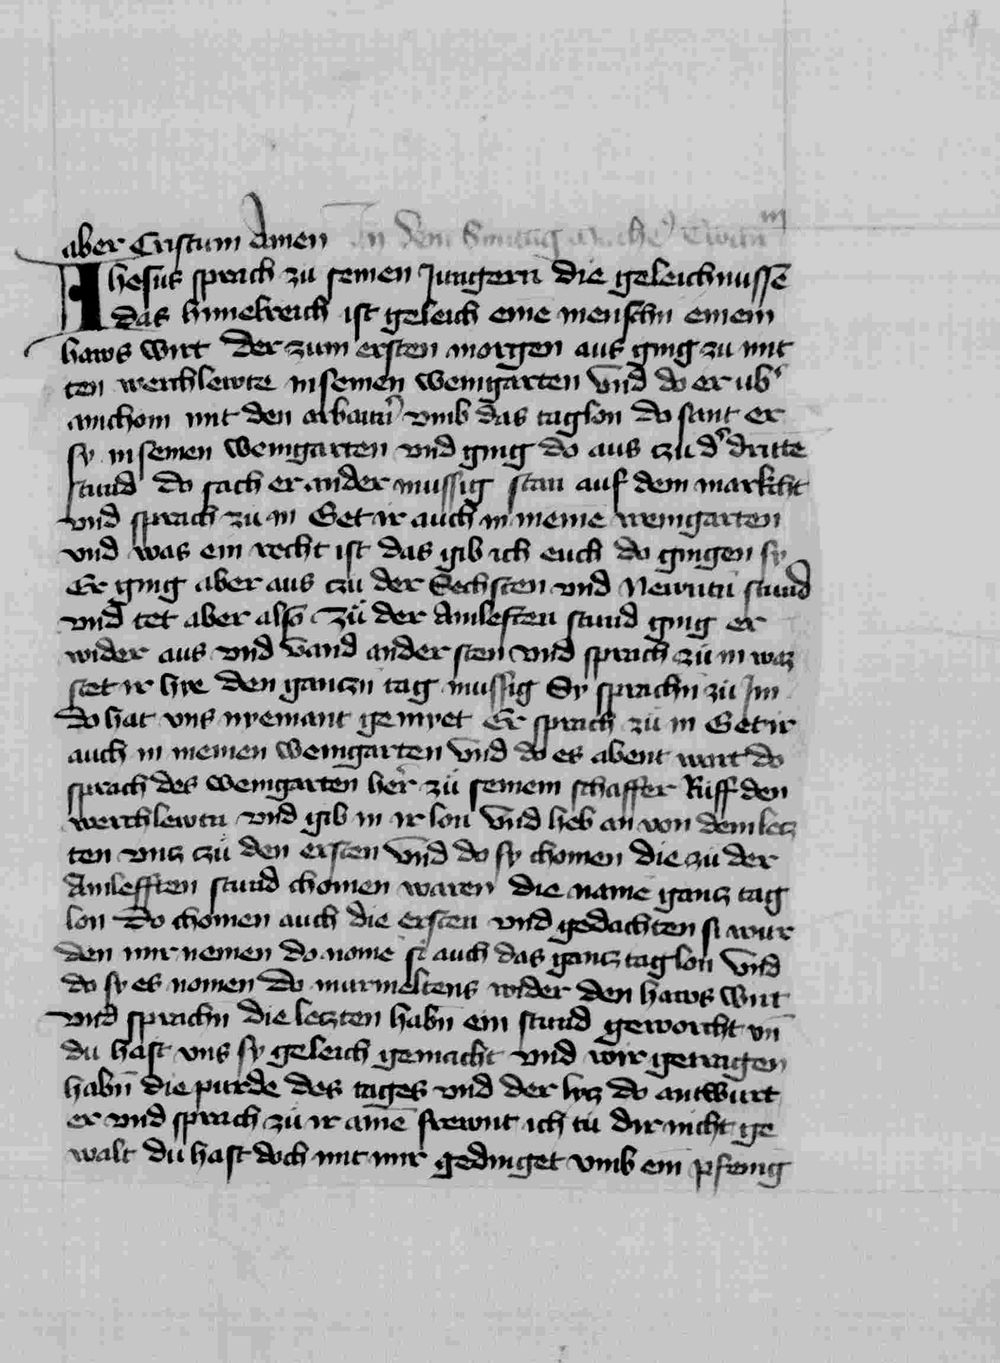 aber Cristum Amen In dem Suntag
Ihesus sprach zu seinen Jungern die geleichnussē
das himelreich ist geleich eine menschn einem
haws wirt der zum ersten morgen aus ging zu mit
ten werchlewte in seinen weingarten vnd do er ub
ainchom mit den arbaittn vmb das taglon do sant er
sy in seinen weingarten vnd ging do aus czu d' dritte
stund do sach er ander mussig stan auf dem markcht
vnd sprach zu in Get ir auch in meine weingarten
vnd was ein recht ist das gib ich euch do gingen sy
Er ging aber aus czu der Sechsten vnd Newntn stund
vnd tet aber also Zu der Ainleften stund ging er
wider aus vnd vand ander sten vnd sprach zu in waz
stet ir hye den ganczn tag mussig Sy sprachn zu Im
do hat vns nyemant gemyet Er sprach zu in Get ir
auch in meinen weingarten vnd do es abent wart do
sprach des weingarten her zu seinem schaffer Ruff den
werchlewtn vnd gib in ir lon vnd heb an von dem lecz
ten vncz czu den ersten vnd do sy chomen die zu der
Ainlefften stund chomen waren die name gancz tag
lon Do chomen auch die ersten vnd gedachten si wur
den mir nemen do nome si auch das gancz taglon vnd
do sy es nomen do murmeltens wider den haws wirt
vnd sprachn die leczten habn ein stund geworcht vn̄
du hast vns sy geleich gemacht vnd wir getragen
habn die purde des tages vnd der hycz do antwurt
er vnd sprach zu ir aine frewnt ich tu dir nicht ge
walt du hast doch mit mir gedinget vmb ein pfenig